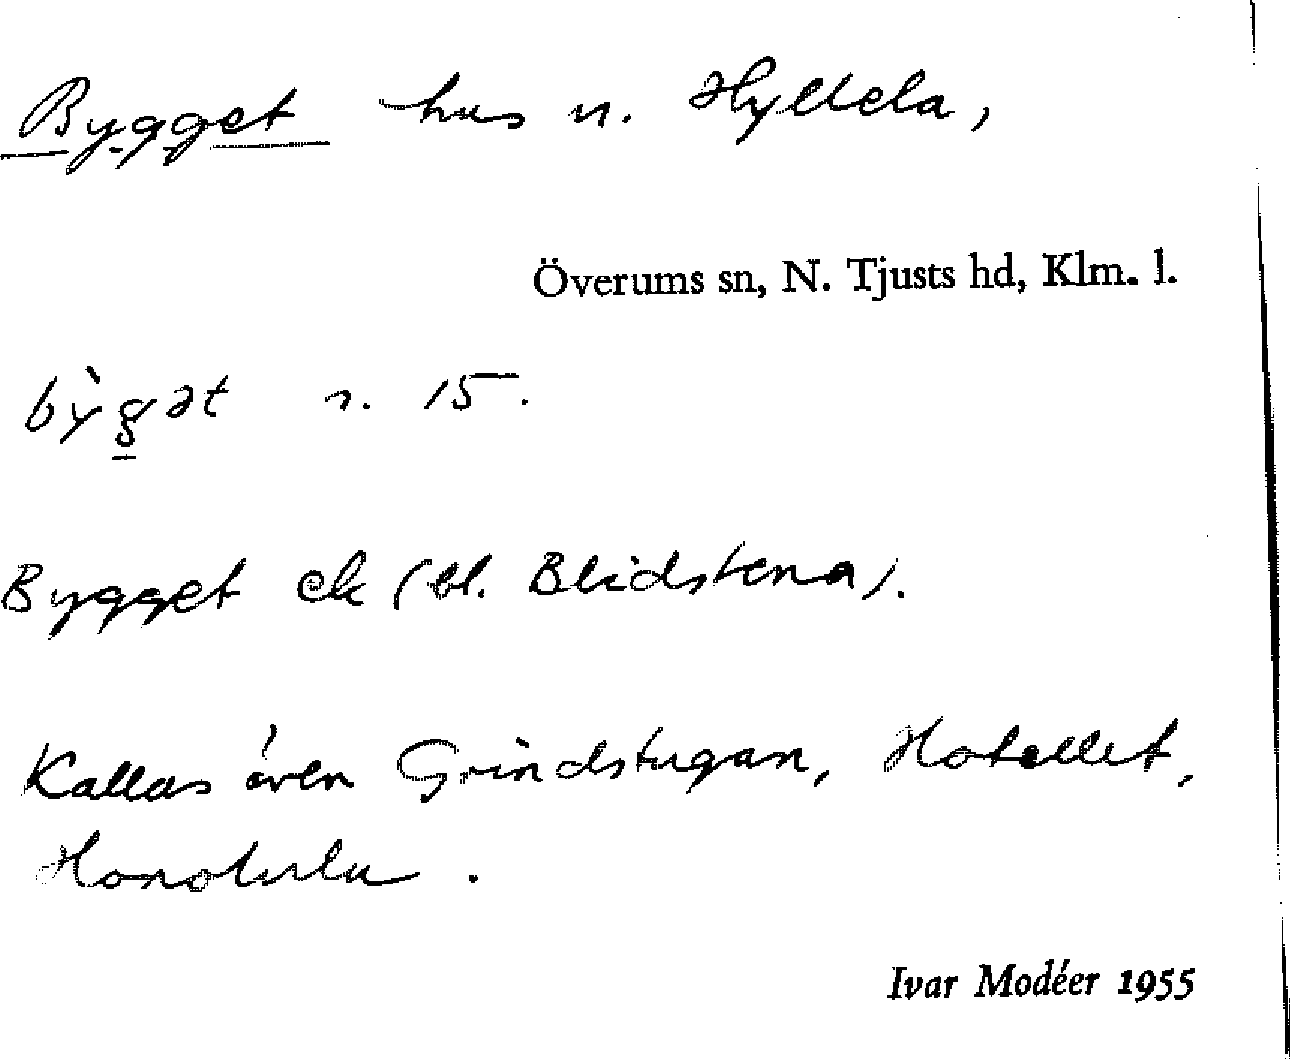 Bygget hus n. Hyllela,
Överums sn, N. Tjusts hd, Klm. l.
bỳg̱ət n. 15.
Bygget ek (bl. Blidstena).
Kallas även Grindstugan, Hotellet,
Honolulu.
Ivar Modéer 1955